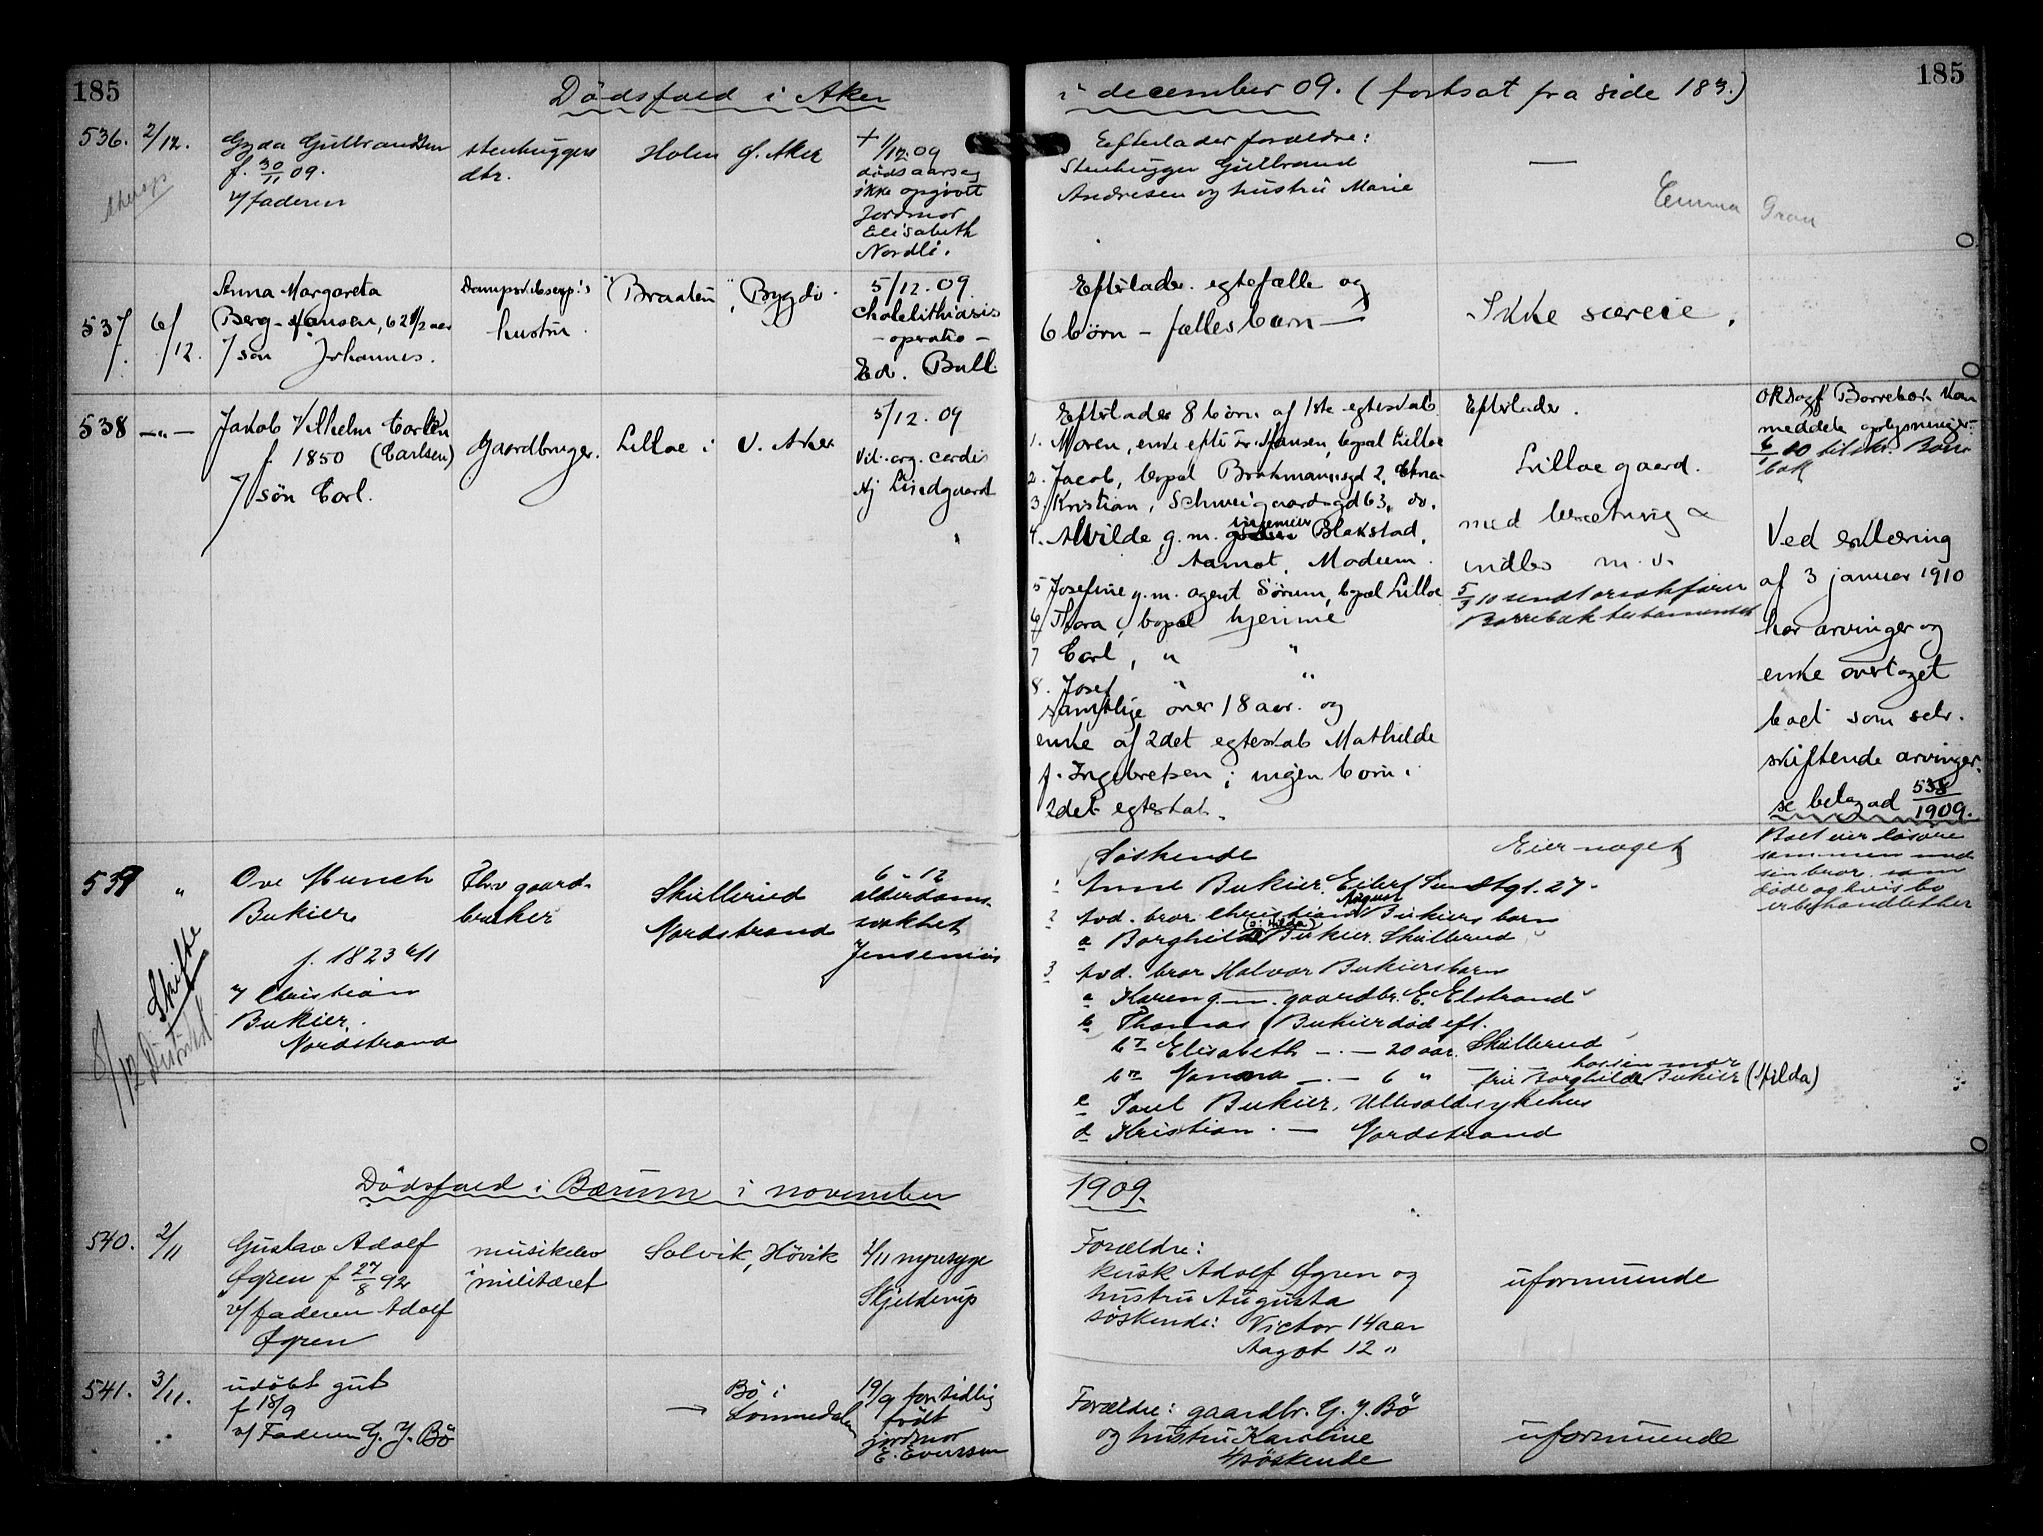 185
Dödsfald i Aker
i december 09. (fortsat fra side 183.)
185
536. 2/12.
Gyda Gulbrandsen
f. 30/11 09.
v/ faderen
stenhuggers
dtr.
Holen Ø. Aker
+ 1/12.09
dödsaarsag
ikke opgivet
Jordmor
Elisabeth
Nordli.
Efterlader forældre:
Stenhugger Gulbrand
Andresen og hustru Marie
—
Emma Gran
537 6/12.
Anna Margareta
Berg-Hansen, 62 1/2 aar
v/ sön Johannes.
hustru
Braaten, Bygdö.
5/12. 09.
Cholelithiasis
- operatio -
Ed. Bull
Efterlader egtefælle og
6 börn - fællesbarn -
Ikke særeie.
538 —„—
Jakob Vilhelm Carlsen
f. 1850 (Carlsen)
v/ sön Carl.
Gaardbruger.
Lilloe i V. Aker
5/12. 09
Vit. org. cordis
Nj Lindgaard
Efterlader 8 börn af 1ste egteskab
1. Maren, enke efter Hansen, bopæl Lilloe
2. Jacob, bopæl Brochmannsgd 2, Chra-
3. Kristian, Schweigaardsgd 63, do.
4. Alvilde g.m. ingeniör Blakstad,
Aamot, Modum.
5 Josefine g.m. agent Sörum, bopæl Lilloe
6 Thora, bopæl hjemme
7 Carl, " "
8. Josef " "
samtlige over 18 aar. og
enke af 2det egteskab Mathilde
f. Ingebretsen; ingen börn i
2det egteskab.
Efterlader.
Lilloe gaard.
med besætning &
indbo m.v.
5/3 10 sendt orsakförer
Borrebæk testamentet
ORsagf Borrebæk kan
meddele oplysninger.
Ved erklæring
af 3 januar 1910
har arvinger og
enke overtaget
boet som selv.
skiftende arvinger.
se bilag ad 538/1909.
539 "
Ove Munch
Bukier
f. 1823 6/11
v/ Christian
Bukier,
Nordstrand
Fhv gaard-
bruker
Skullerud
Nordstrand
6-12
alderdoms-
svakhet
Jensenius
8/12 Skifte
Söskende
1 Anne Bukier, Eilert Sundtgt. 27.
2 Avd. bror Christian August Bukiers barn
a Borghild (o: Hilda) Bukier, Skullerud
3 Avd. bror Halvor Bukiers barn
a Karen g.m. gaardbr. E. Elstrand
b Thomas Bukier död eft.
b I Elisabeth —.— 20 aar. Skullerud
b II Nanna —.— 6 " hos sin mor
fru Borghild Bukier (Hilda)
c Paul Bukier, Ullevaal sykehus
d Kristian . — Nordstrand
Eier noget
Boet eier lösöre
sammen med
sin bror, som
döde og hvis bo
er behandlet her
Dödsfald i Bærum i november
1909.
540. 2/11
Gustav Adolf
Øgren f 27/8 92
v/ faderen Adolf
Øgren
musikelev
i militæret
Solvik, Hövik
2/11 nyresyge
Skjelderup
Forældre:
kusk Adolf Øgren og
hustru Augusta
söskende: Victor 14 aar
Aagot 12 "
uformuende
541. 3/11.
udöbt gut
f 18/9
v/ Faderen G. J. Bö
—
Bö i
Lommedalen
19/9 for tidlig
födt
jordmor
E. Evensen
Forældre: gaardbr. G. J. Bö
og hustru Karoline
4 söskende
uformuende